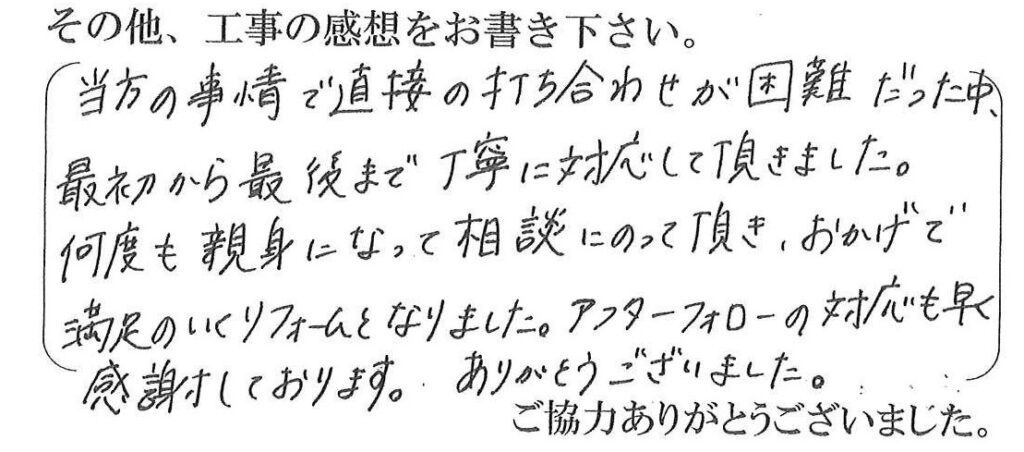 その他、工事の感想をお書き下さい。
当方の事情で直接の打ち合わせが困難だった中、
最初から最後まで丁寧に対応して頂きました。
何度も親身になって相談にのって頂き、おかげで
満足のいくリフォームとなりました。アフターフォローの対応も早く
感謝しております。ありがとうございました。
ご協力ありがとうございました。